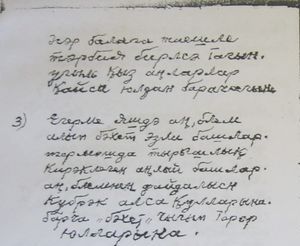 Һәр балага тиешле
тәрбия бирелсә Тагын.
угыл, Кыз аңларлар
Кайсы юлдан барачагын.
3) Егерме яшьдә аң, белем
алып бәхет эзли башлар.
тормошда тырышлык
Кирәклеген аңлай башлар.
аң, белемнең файдалысын
Күбрәк алса Кулларына.
"бәхет" чыгып Торор
юлларына.